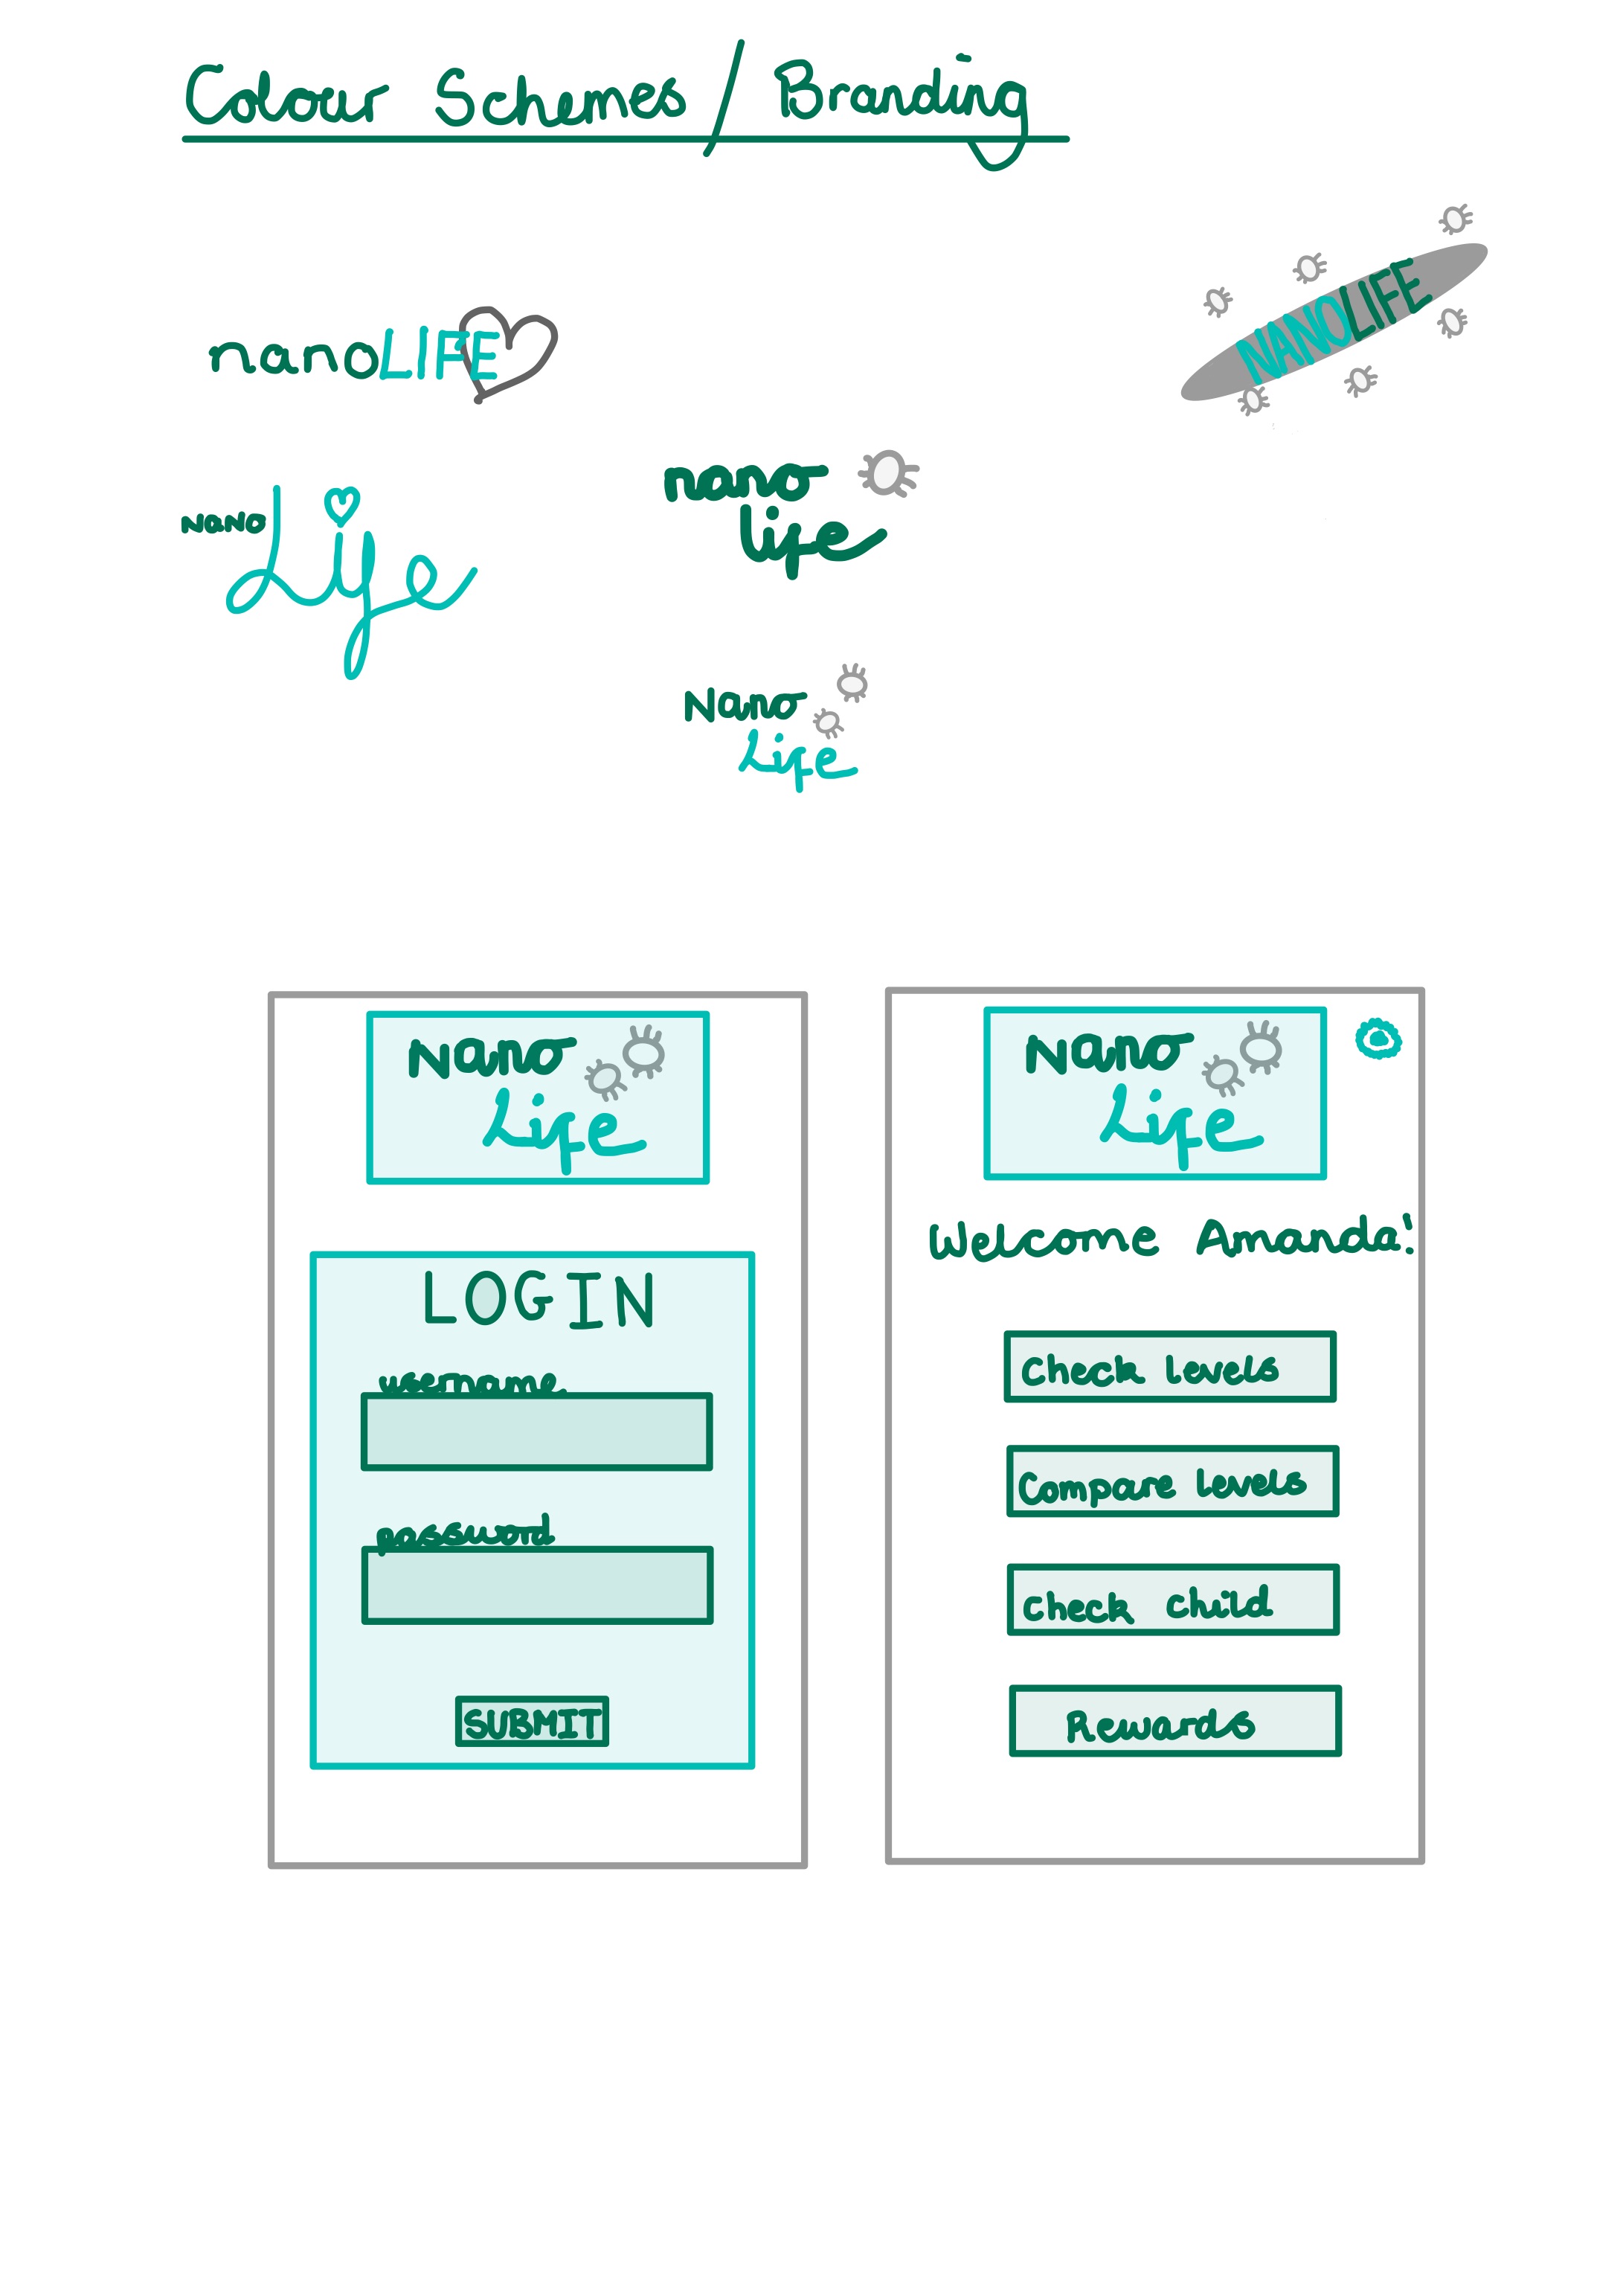 Colour Schemes / Branding
NANOLIFE
nanoLIFE
nano
life
NANO
Life
Nano
Life
Nano
Life
LOGIN
username
password
SUBMIT
Nano
Life
Welcome Amanda!
Check levels
Compare levels
Check child
Rewards